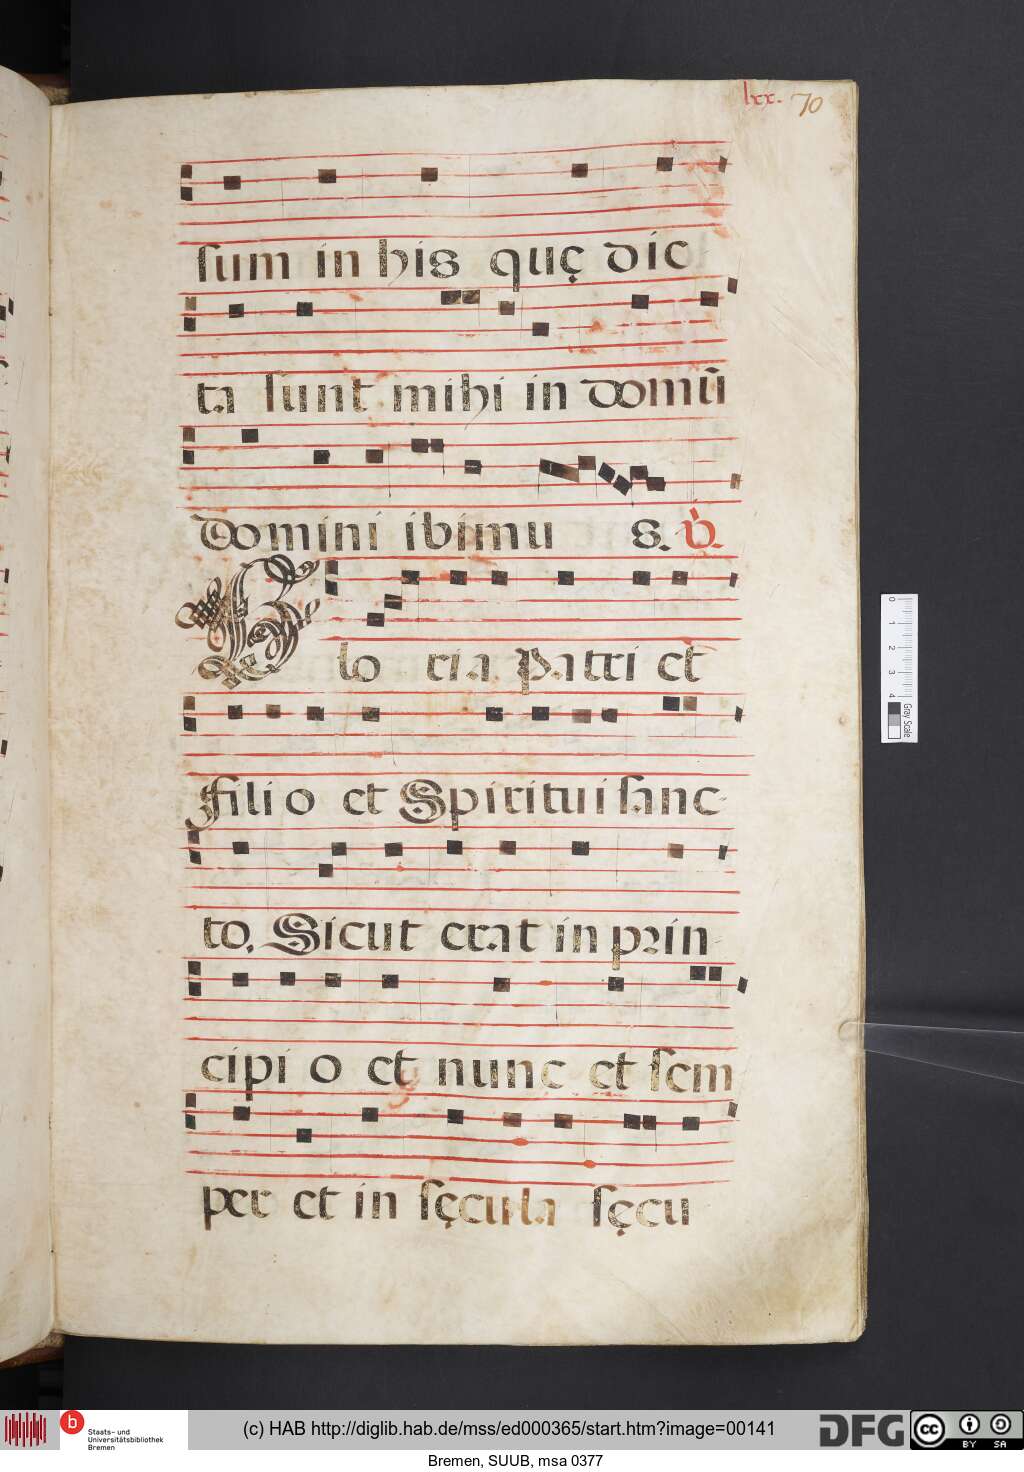 lxx. 70
sum in his quę dic
ta sunt mihi in domũ
domini ibimu s. V.
Glo ria Patri et
Filio et Spiritui sanc-
to. Sicut erat in prin
cipi o et nunc et sem
per et in sęcula sęcu
0 1 2 3 4 Gray Scale
b Staats- und
Universitätsbibliothek
Bremen
(c) HAB http://diglib.hab.de/mss/ed000365/start.htm?image=00141
DFG
cc BY SA
Bremen, SUUB, msa 0377